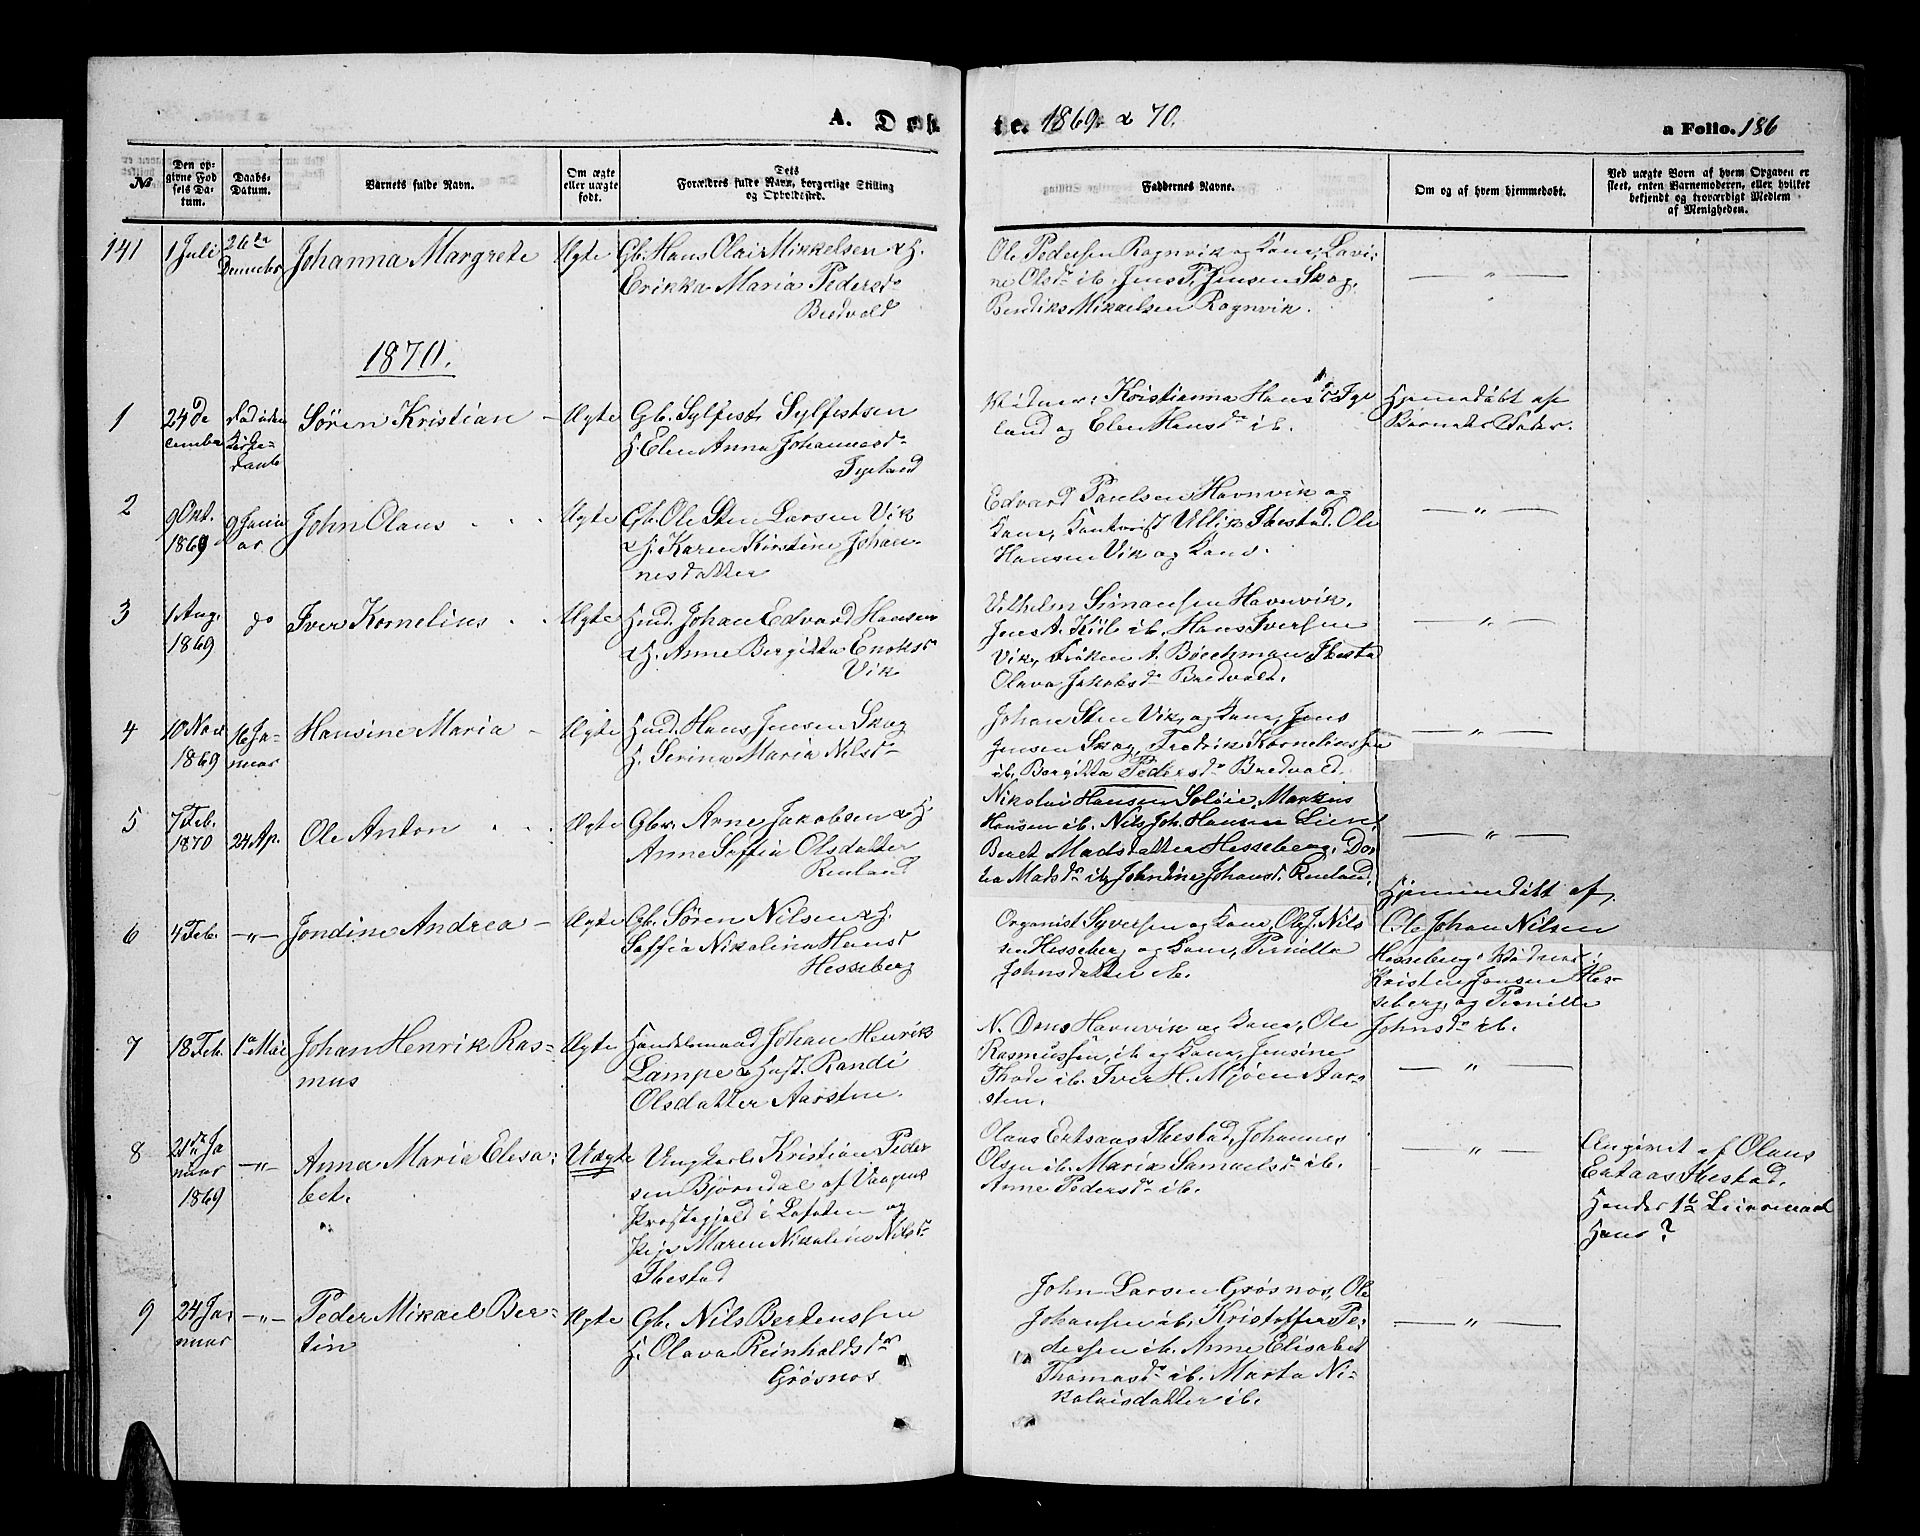 A. Døb
te. 1869 & 70.
a Folio. 186
No
Den op-
givne Fød
sels Da-
tum.
Daabs-
Datum.
Barnets fulde Navn.
Om ægte
eller uægte
født.
Dets
Forældres fulde Navn, borgerlige Stilling
og Opholdssted.
Faddernes Navne.
Om og af hvem hjemmedøbt.
Ved uægte Børn af hvem Opgaven er
skeet, enten Barnemoderen, eller hvilket
bekjendt og troværdigt Medlem
af Menigheden.
141
1 Juli
26de
Decmeber
Johanna Margrete
Ægte
Gb. Hans Olai Mikkelsen & H.
Erikka Maria Pedersdr
Bredvold
Ole Pedersen Rognvik og Kone, Lavi-
ne Olsdr ib. Jens P. Jensen Skog,
Bendiks Mikaelsen Rognvik.
— " —
1870.
1
24 De
cember
død uden
Kirke-
daab
Søren Kristian —
Ægte
Gb. Sylfest Sylfestsen
H. Elen Anna Johannesdr
Vidner: Kristianna Hansdr
land og Elen Hansdr ib.
Hjemmedøbt af
Barnets Fader.
2
9 Okt.
1869
9 Janu
ar
John Olaus
Ægte
Gb. Ole Sten Larsen Vik
& H. Karen Kirstine Johan-
nesdatter
Edvard Paulsen Havnvik og
Kone, Ibestad. Ole
Hansen Vik og Kone.
— " —
3
1 Aug.
1869
do
Iver Kornelius
Ægte
Hmd. Johan Edvard Hansen
& H. Anne Bergitta Enoksdr
Vik
Vilhelm Simonsen Havnvik,
Jens A. Kiil ib. Hans Iversen
Vik, Frøken A. Böeckman, Ibesta
Olava Jakobsdr Bredvold.
— " —
4
10 Nov
1869
16 Ja-
nuar
Hansine Maria —
Ægte
Hmd. Hans Jensen Skog
H. Serina Maria Nilsdr
Johan Sten Vik, og Kone, Jens
Jensen Skog, Fredrik Korneliussen
ib. Bergitta Pedersdr Bredvold.
— " —
5
7 Feb.
1870
24 Ap.
Ole Anton
Ægte
Gbr. Arne Jakobsen & H.
Anne Soffia Olsdatter
Renland
Nikolai Hansen Soløie, Markus
Hansen ib. Nils Joh. Hansen Lien,
Beret Madsdatter Hesseberg, Dor-
tea Madsdr ib, Johndine Johansd. Renland.
— " —
6
4 Feb.
— " —
Jondine Andrea —
Ægte
Gb. Søren Nilsen & H.
Soffia Nikolina Hansd
Hesseberg
Organist Syversen og Kone, Ole J. Nils
sen Hesseberg og Kone, Pernilla
Johnsdatter ib.
Hjemmedøbt af
Ole Johan Nilsen
Hesseberg. Vidner:
Kristen Jensen Hes-
seberg, og Pernille
Johnsdr ib.
7
18 Feb.
1ste Mai
Johan Henrik Ras-
mus
Ægte
Handelsmand Johan Henrik
Lampe & Hust. Randi
Olsdatter Aarsten.
N. Dons Havnvik og Kone, Ole
Rasmussen, ib og Kone, Jensine
Thode ib. Iver H. Mjøen Aar-
sten.
— " —
8
21de Ja
nuar
1869
— " —
Anna Marie Elesa-
bet.
Uægte
Ungkarl Kristian Peder
sen Bjørndal af Vaagens
Præstegjeld i Lofoten og
Pige Maren Nikoline Nilsdr
Ibestad
Olaus Ertsaas Ibestad, Johannes
Olsen ib. Marie Samuelsdr ib.
Anne Pedersdr ib.
— " —
Angivet af Olaus
Ertsaas Ibestad.
Hendes 1ste Leiermaal
Hans?
9
24 Ja-
nuar
— " —
Peder Mikael Ber-
tin
Ægte
Gb. Nils Bertenssen
H. Olava Reinholdsdr
Grøsnes
John Larsen Grøsnes, Ole
Johansen ib. Kristoffer Pe-
dersen ib. Anne Elisabet
Thomasdr ib. Marta Ni-
kolaisdatter ib.
— " —